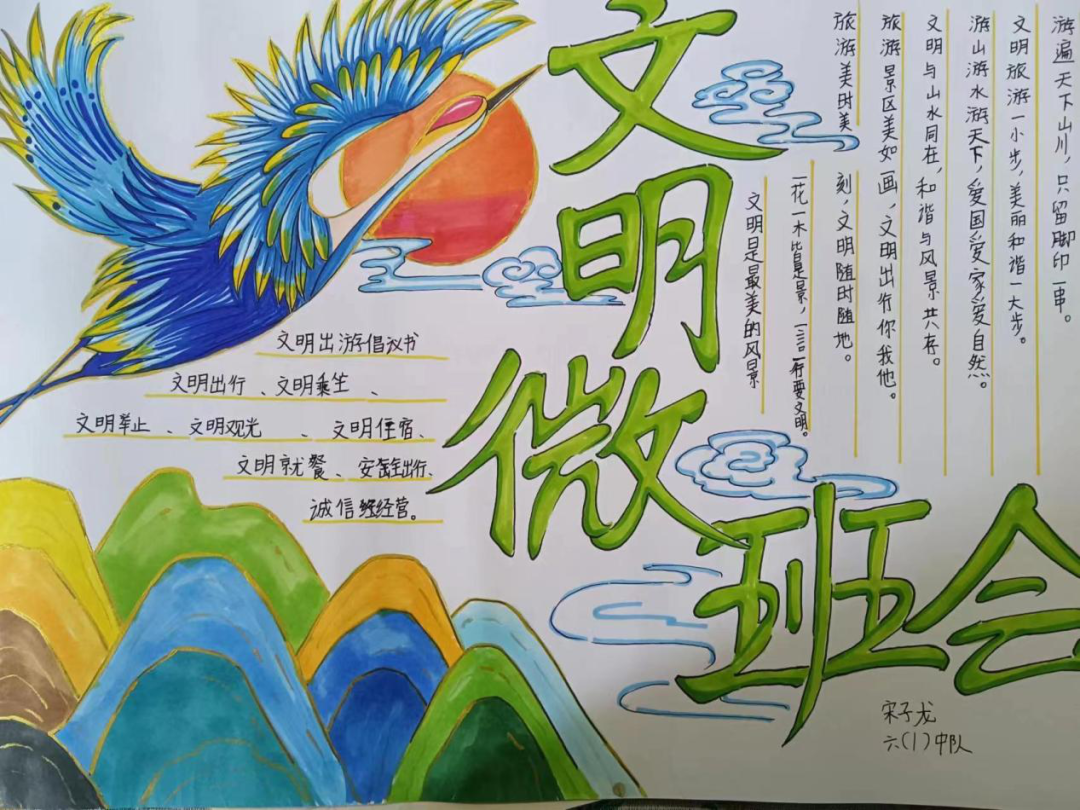 文明微班会
游遍天下山川，只留脚印一串。
文明旅游一小步，美丽和谐一大步。
游山游水游天下，爱国爱家爱自然。
文明与山水同在，和谐与风景共存。
旅游景区美如画，文明出行你我他。
旅游美时美刻，文明随时随地。
一花一木皆是景，一言一行要文明。
文明是最美的风景
文明出游倡议书
文明出行、文明乘坐、
文明举止、文明观光、文明住宿、
文明就餐、安全出行、
诚信经营。
宋子龙
六(1)中队